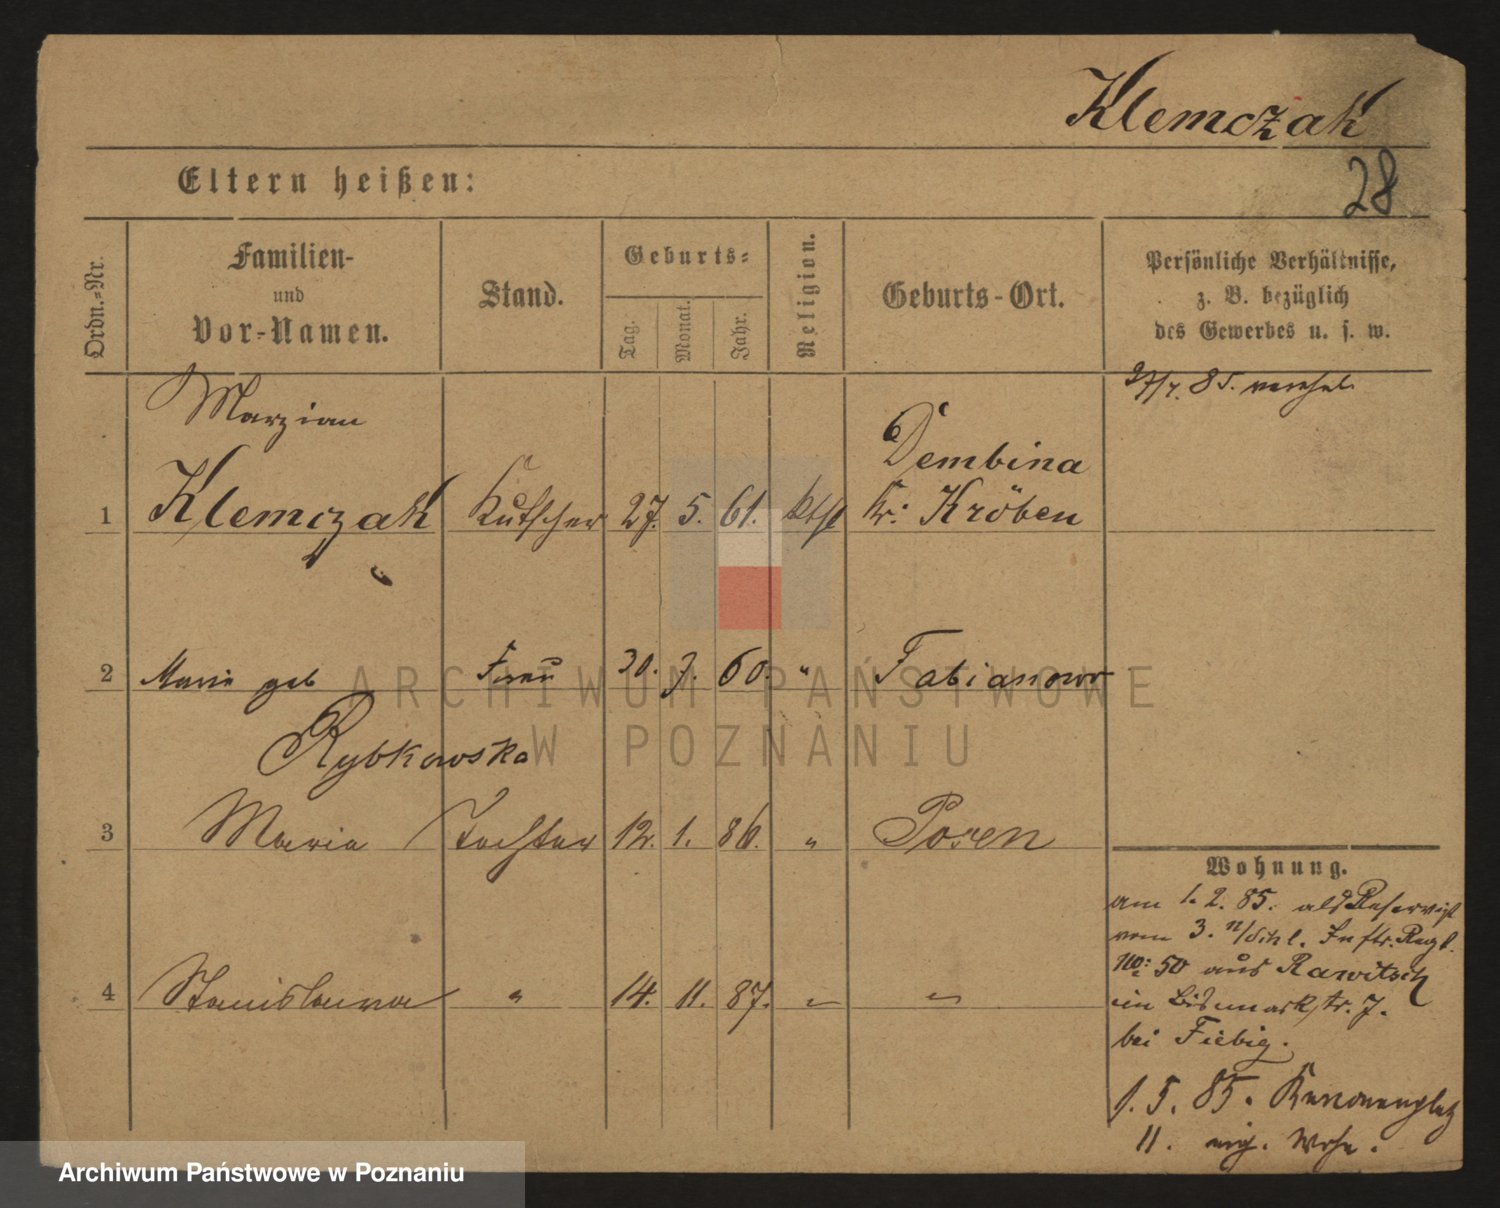 Klemczak
28
Eltern heißen:
Ordn.-Nr.
Familien-
und
Vor-Namen.
Stand.
Geburts-
Tag.
Monat.
Jahr.
Religion.
Geburts-Ort.
Persönliche Verhältnisse,
z. B. bezüglich
des Gewerbes u. s. w.
27/7. 85. verehel.
Marzian
1 Klemczak Kutscher 27. 5. 61. kthl Dembina
Kr: Kröben
2 Marie geb Frau 30. 7. 60. " Fabianowo
Rybkowska
3 Maria Tochter 12. 1. 86. " Posen
4 Stanislawa " 14. 11. 87. " "
Wohnung.
am 1. 2. 85. als Reservist
vom 3. n/Schl. Inftr. Regt.
No: 50 aus Rawitsch
in Bismarkstr. 7.
bei Fiebig.
1. 5. 85.
11. eig. Wohn.
ARCHIWUM PAŃSTWOWE
W POZNANIU
Archiwum Państwowe w Poznaniu